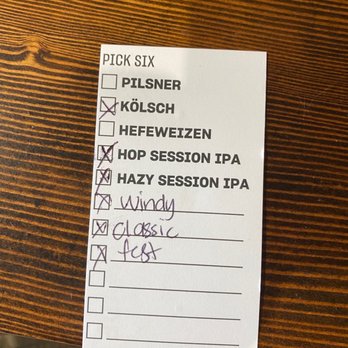 PICK SIX
PILSNER
KÖLSCH
HEFEWEIZEN
HOP SESSION IPA
HAZY SESSION IPA
Windy
classic
fest